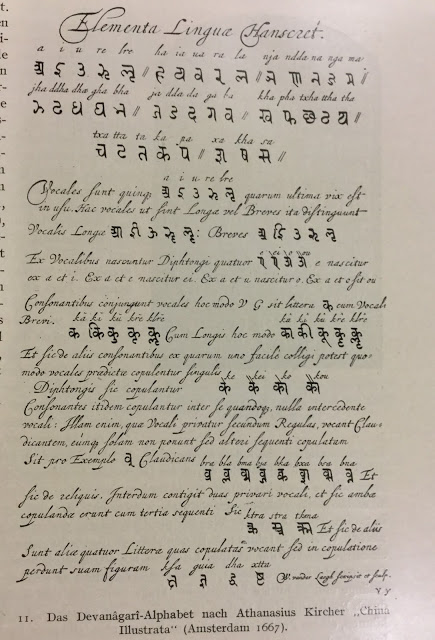 Elementa Linguæ Hanscret.
a i u re lre ha ia ua ra la nja ndda na nga ma
अ इ उ ऋ लृ ॥ ह य व र ल ॥ ञ ण न ङ म ॥
jha ddha dha gha bha ja dda da ga ba kha pha txha ttha tha
झ ढ ध घ भ ॥ ज ड द ग ब ॥ ख फ छ ठ थ ॥
txa tta ta ka pa xa kha sa
च ट त क प ॥ श ष स ॥
a i u re lre
Vocales sunt quinq; अ इ उ ऋ लृ quarum ultima vix est
in usu. Hæc vocales ut sint Longæ vel Breves ita distinguunt
Vocalis Longæ आ ई ऊ ॠ ॡ : Breves अ इ उ ऋ लृ
Ex Vocalibus nascuntur Diphtongi quatuor ए ऐ ओ औ e nascitur
ex a et i. Ex a et e nascitur ei. Ex a et u nascitur o. Ex a et o fit ou
Consonantibus conjungunt vocales hoc modo V G sit littera क cum Vocali
Brevi. ka ki ku kre klre ka ki ku kre klre
क कि कु कृ कॢ Cum Longis hoc modo का की कू कॄ कॣ
Et sic de aliis consonantibus ex quarum uno facile colligi potest quo-
modo vocales prædictæ copulentur singulis ke kei ko kou
Diphtongis sic copulantur के कै को कौ
Consonantes itidem copulantur inter se quandoq; nulla intercedente
vocali: Illam enim, quæ Vocali privatur secundum Regulas, vocant Clau-
dicantem, eunq; solam non ponunt sed alteri sequenti copulatam
Sit pro Exemplo व् Claudicans bra bla bma bja bka bxa bsa bna
Et
sic de reliquis. Interdum contigit duas privari vocali, et sic ambæ
copulandæ erunt cum tertia sequenti Sic ktra stra tkma
Et sic de aliis
Sunt aliæ quatuor Litteræ quas copulatas vocant sed in copulatione
perdunt suam figuram ksa guia dha xtta
W. vander Laegh scripsit et sculp.
V y
11. Das Devanâgarî-Alphabet nach Athanasius Kircher „China
Illustrata“ (Amsterdam 1667).